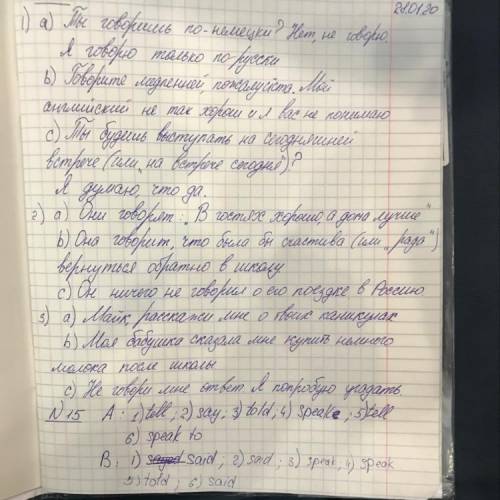 21.01.20
1) a) Ты говоришь по-немецки? Нет, не говорю
Я говорю только по-русски
b) Говорите медленней, пожалуйста. Мой
английский не так хорош и я вас не понимаю
c) Ты будешь выступать на сегодняшней
встрече (или "на встрече сегодня")?
Я думаю, что да.
2) a) Они говорят: "В гостях хорошо, а дома лучше"
b) Она говорит, что была бы счастлива (или "рада")
вернуться обратно в школу
c) Он ничего не говорил о его поездке в Россию
3) a) Майк, расскажи мне о твоих каникулах
b) Моя бабушка сказала мне купить немного
молока после школы
c) Не говори мне ответ. Я попробую угадать.
N 15 A: 1) tell; 2) say; 3) told; 4) speak; 5) tell
6) speak to
B: 1) said; 2) said; 3) speak; 4) speak
5) told; 6) said